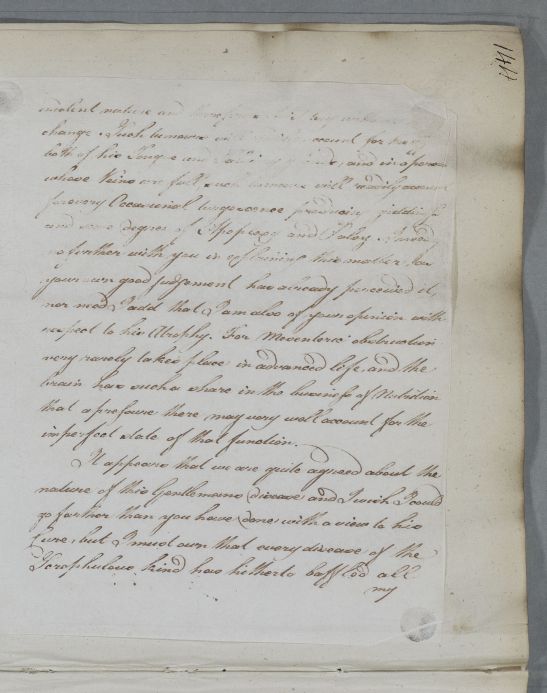 indolent nature and therefore
change. Such tumors will account for
both of his Tongue and and in a person
whose Veins are full such tumors will readily account
for every Occasional turgescence producing giddiness
and some degree of Apoplexy and Palsy. I need
no further with you in explaining this matter. For
your own good judgement has already perceived it,
nor need I add that I am also of your opinion with
respect to his Atrophy. For Mesenteric obstruction
very rarely takes place in advanced life and the
brain has such a share in the business of Nutrition
that a pressure there may very well account for the
imperfect state of that function.
It appears that we are quite agreed about the
nature of this Gentlemans disease and I wish I could
go farther than you have done with a view to his
Cure, but I must own that every disease of the
Scrophulous kind has hitherto baffled all
my